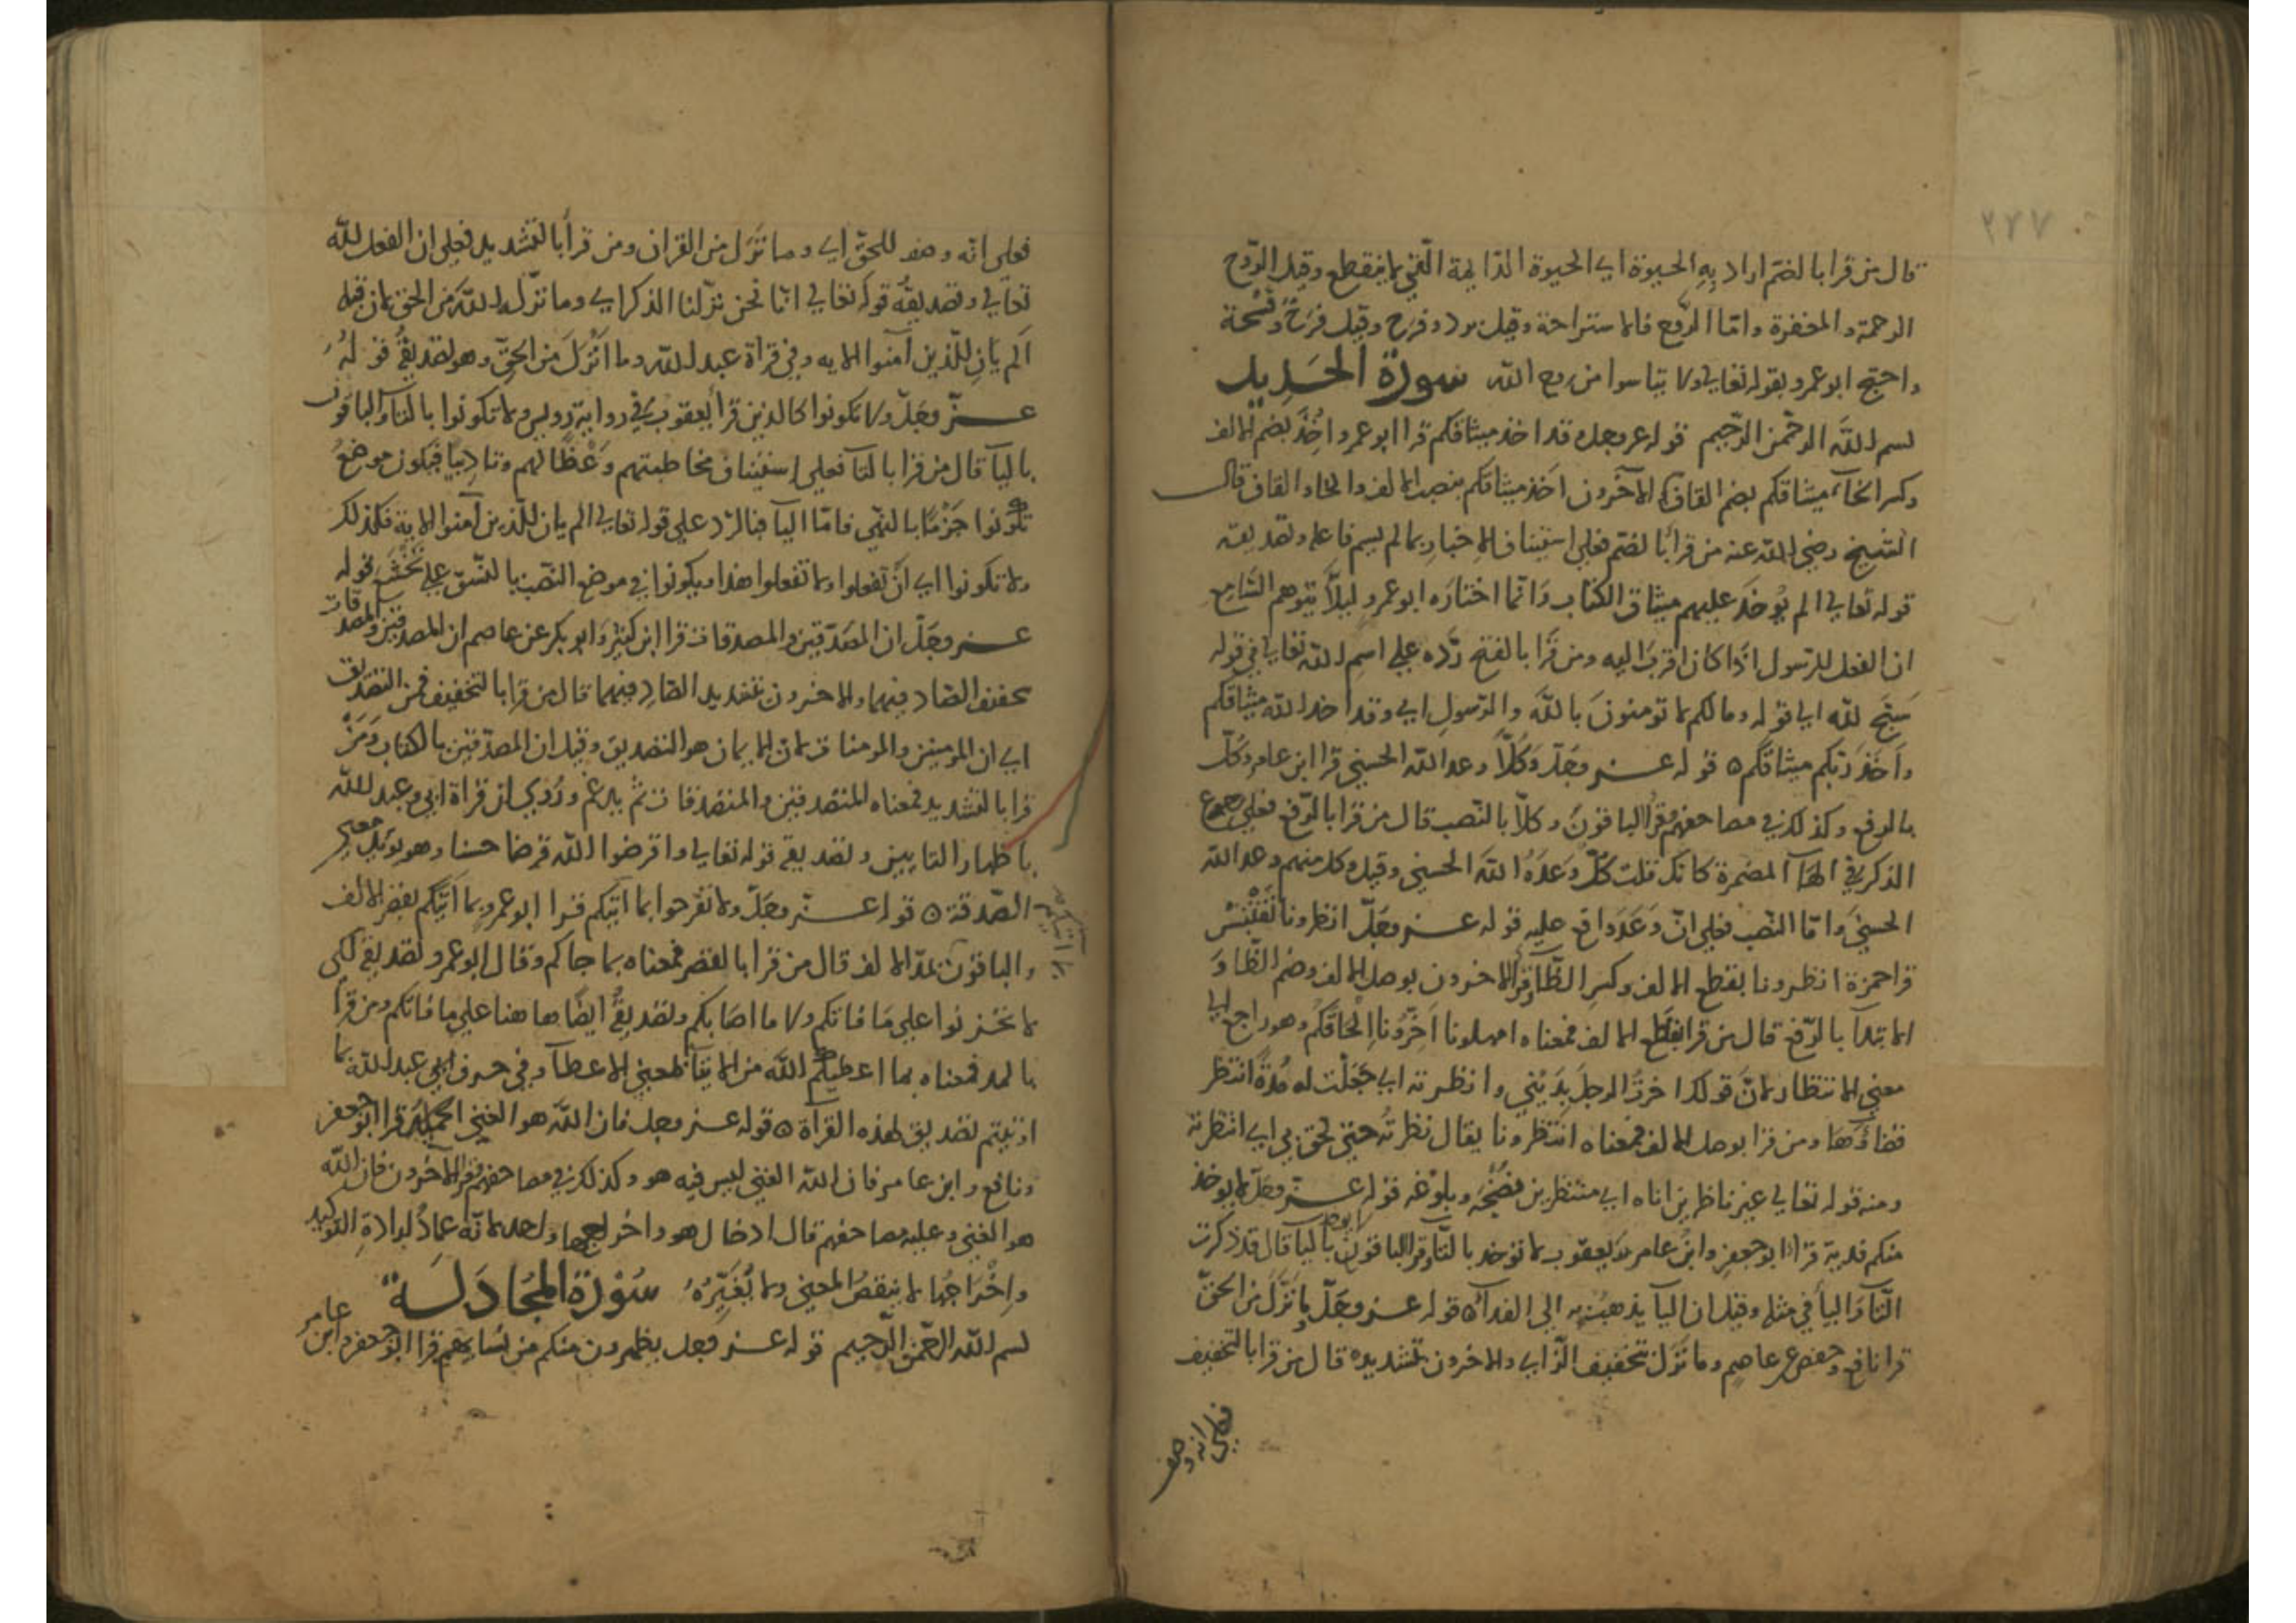 ٢٧٧
قال من قرا بالضم اراد به الحيوة اي الحيوة الدايمة التي لا ينقطع وقيل الرّوح
الرحمة والمغفرة وامّا الرَّفع فالاستراحة وقيل برد وفرح وقيل فرَحٌ وفُسْحة
واحتج ابو عمرو بقوله تعالي ولا يتاسوا من روح الله سورة الحَدِيد
بسم الله الرحمن الرحيم قوله عز وجل وقد اخذ ميثاقكم قرا ابو عمرو اُخِذَ بضم الالف
وكسر الخآء ميثاقكم بضم القاف الآخرون اَخَذ ميثاقكم بنصب الالف والخاء والقاف قال
الشيخ رضي الله عنه من قرأ بالضم فعلي استيناف الاخبارِ بما لم يسم فاعله وتصديقه
قوله تعالي الم يُوخذ عليهم ميثاق الكتاب وَانما اختارَه ابو عمرو ليلاَّ يتوهم السّامع
ان الفعل للرسول اذا كان اقربَ اليه ومن قرَا بالفتح ردّه علي اسم الله تعالي في قوله
سَبّحَ لله الي قوله وما لكم لا تومنونَ بالله والرّسولِ اي وقد اخذ الله ميثاقكم
واَخَذَ ربّكم ميثاقَكم ه قوله عز وجَلّ وَكُلّاً وعد الله الحسني قرا ابن عامر وكُلّ
بالرفع وكذلك في مصاحفهم وقرأ الباقونَ وكلاًّ بالنّصب قال من قرا بالرّفع فعلي رجوع
الذكر في الهَآ المضمرة كانك قلت كُلٌّ وَعَدَهُ الله الحسني وقيل وكل منهم وعد الله
الحسنيَ وامّا النّصب فعلي انّ وَعَدَ واقع عليه قوله عز وجَلّ انظرونا نَقْتَبِسْ
قرا حمزة انظرونا بقطع الالف وكسرِ الظّآ وقرأ الاخرون بوصل الالف وضم الظّا وَ
الابتدآ بالرّفع قال من قرا بقطع الالف فمعناه امهلونا اَخِّرُونا اِلْحاقَكُم وهو راجع الي
معني الانتظار لانَّ قولك اخرتُ الرجلَ بِدَيْنيٍ وانظرته اي جَعَلْت له مُدةً انتظر
قضاءَها ومن قرا بوصل الالف فمعناه انتظرونا يقال نظرتُه حتي لحق بي اي انتظرته
ومنه قوله تعالي غير ناظرين اناه اي منتظرين نُضْجَه وبلوغه قوله عز وجَلّ لا يوخذ
منكم فدية قرا ابو جعفرٍ وابنُ عامر ويَعقوب لا توخذ بالتّآ وقرا الباقونَ لا يوخذ بالياَ قال قد ذكرت
التّآ وَاليأَ في مثله وقيل ان اليآ يذهبُ به الي الفدآ ه قوله عز وجَلّ وما نَزَلَ من الحقّ
قرا نافع وحفص عن عاصِم وما نَزَلَ بتخفيف الزّاي والاخرون بتشديده قال من قرا بالتخفيف
فعلي انه وصف
فعلي انّه وصف للحقّ اي وما نَزَل من القران ومن قرأ بالتشديد فعلي ان الفعل لله
تعالي وتصديقُه قوله تعالي انّا نحن نزّلنا الذكر اي وما نزّل الله من الحق لان قبله
اَلم يَانِ للّذين آمنوا الايه وفي قراة عبد الله وما اُنْزِلَ من الحقّ وهو تصديقُ قوله
عزّ وجَلّ ولا تكونوا كالذين قرا يعقوب في رواية رويس ولا تكونوا بالتآ والباقون
باليآ قال من قرا بالتآ فعلي اسْتيناف مخاطبتهم وَعْظًا لهم وتادِيبًا فيكون موضعُ
تكونوا جَزْمًا بالنهي فامّا اليآ فبالرّد علي قوله تعالي الم يان للذين آمنوا الاية فكذلك
ولا تكونوا اي اَنْ تَفعلوا ولا تفعلوا هذا ويكونوا في موضع النّصب بالنّسق علي تَخْشَعَ قوله
عز وجَلّ ان المصّدّقين والمصدقات قرا ابن كثير وَابو بكر عن عاصم ان المصدقين والمصدقات
بتخفيف الصّاد فيهما والاخرون بتشديد الصّادِ فيهما قال من قرا بالتخفيف فمن التصديق
اي ان المومنين والمومنات لان الايمان هو التصديق وقيل ان المصدّقين بالكتاب وَمَنْ
قرا بالتشديد فمعناه المتصدقين والمتصدقات ثم يدغم ورُوي ان قراة ابي وعبد الله
باظهار التايين وتصديقه قوله تعالي واقرضوا الله قرضا حسنا وهو يوكّد معني
الصّدقة ه قوله عز وجَلّ ولا تفرحوا بما اتيكم قرا ابو عمرو بما اَتَيكم بقصر الالف
بما اتيكم
والباقون بمدّ الالف قال من قرا بالقصر فمعناه بما جاكم وقال ابو عمرو تصديقه لكي
لا تحزنوا علي مَا فاتكم ولا ما اصَابكم وتصديقُه ايضًا هاهنا علي ما فاتكم ومن قرا
بالمد فمعناه بما اعطيكم الله من الايتآ بمعني الاعطآ وفي حرف ابي عبد الله بما
اوتيتم تصديق لهذه القرأة ه قوله عز وجل فان الله هو الغني الحميد قرا ابو جعفر
ونافع وابن عامر فان الله الغني ليس فيه هو وكذلك في مصاحفهم وقرأ الآخرون فان الله
هو الغني وعليه مصاحفهم قال ادخال هو واخراجها واحد لانّه عمادٌ لزيادةِ التوكيد
واِخْراجُها لا ينقصُ المعني ولا يُغَيّرُهُ سُوْرَةُ المجَادَلَة
بسم الله الرحمن الرحيم قوله عز وجل يظهرون منكم من نسايهم قرا ابو جعفر وابن عامر